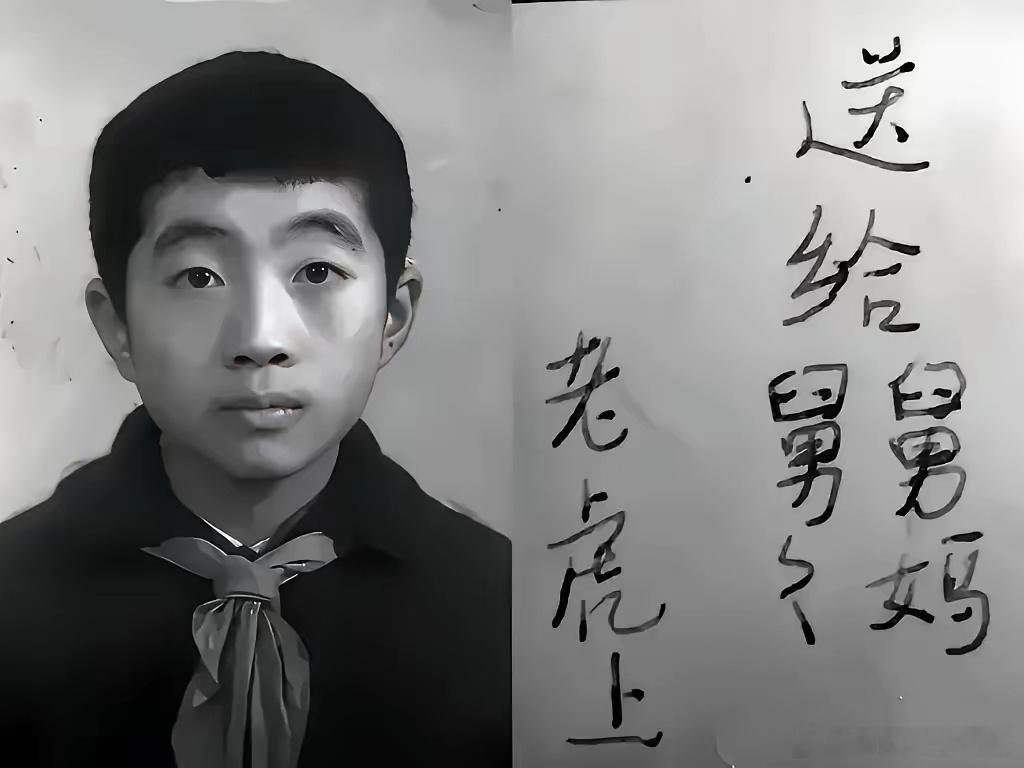 送给
舅妈
舅〻
老虎上